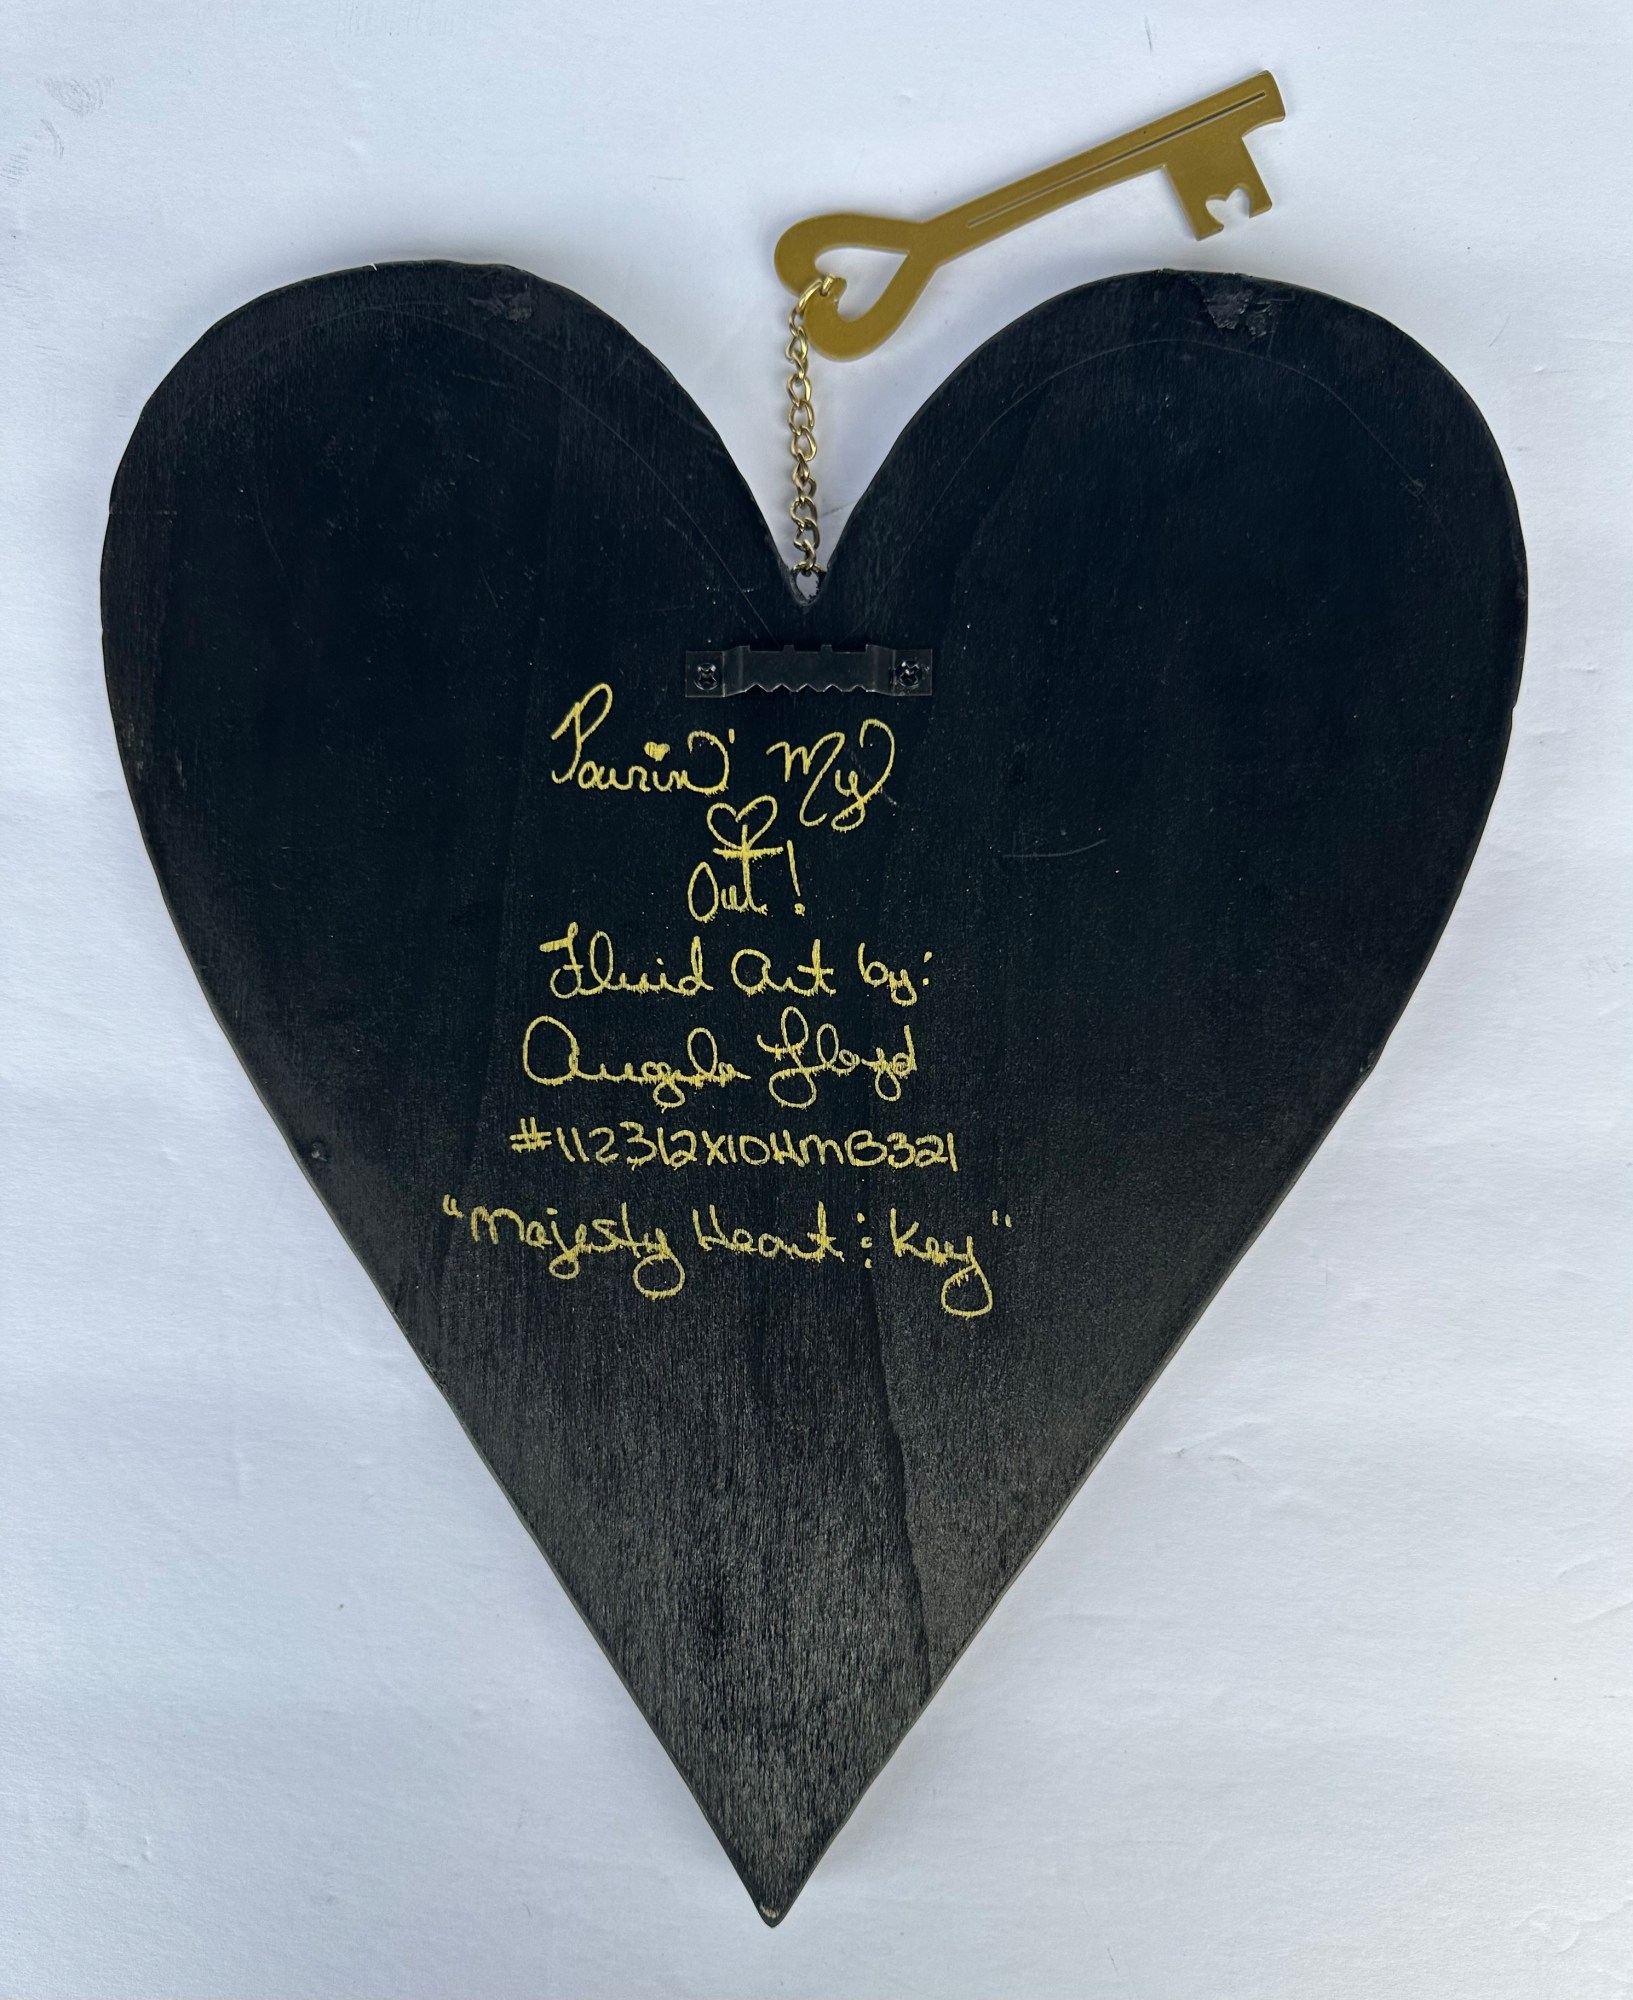 Pourin' My
♡
Out!
Fluid Art by:
Angela Lloyd
#112312X10HMB321
"Majesty Heart : Key"